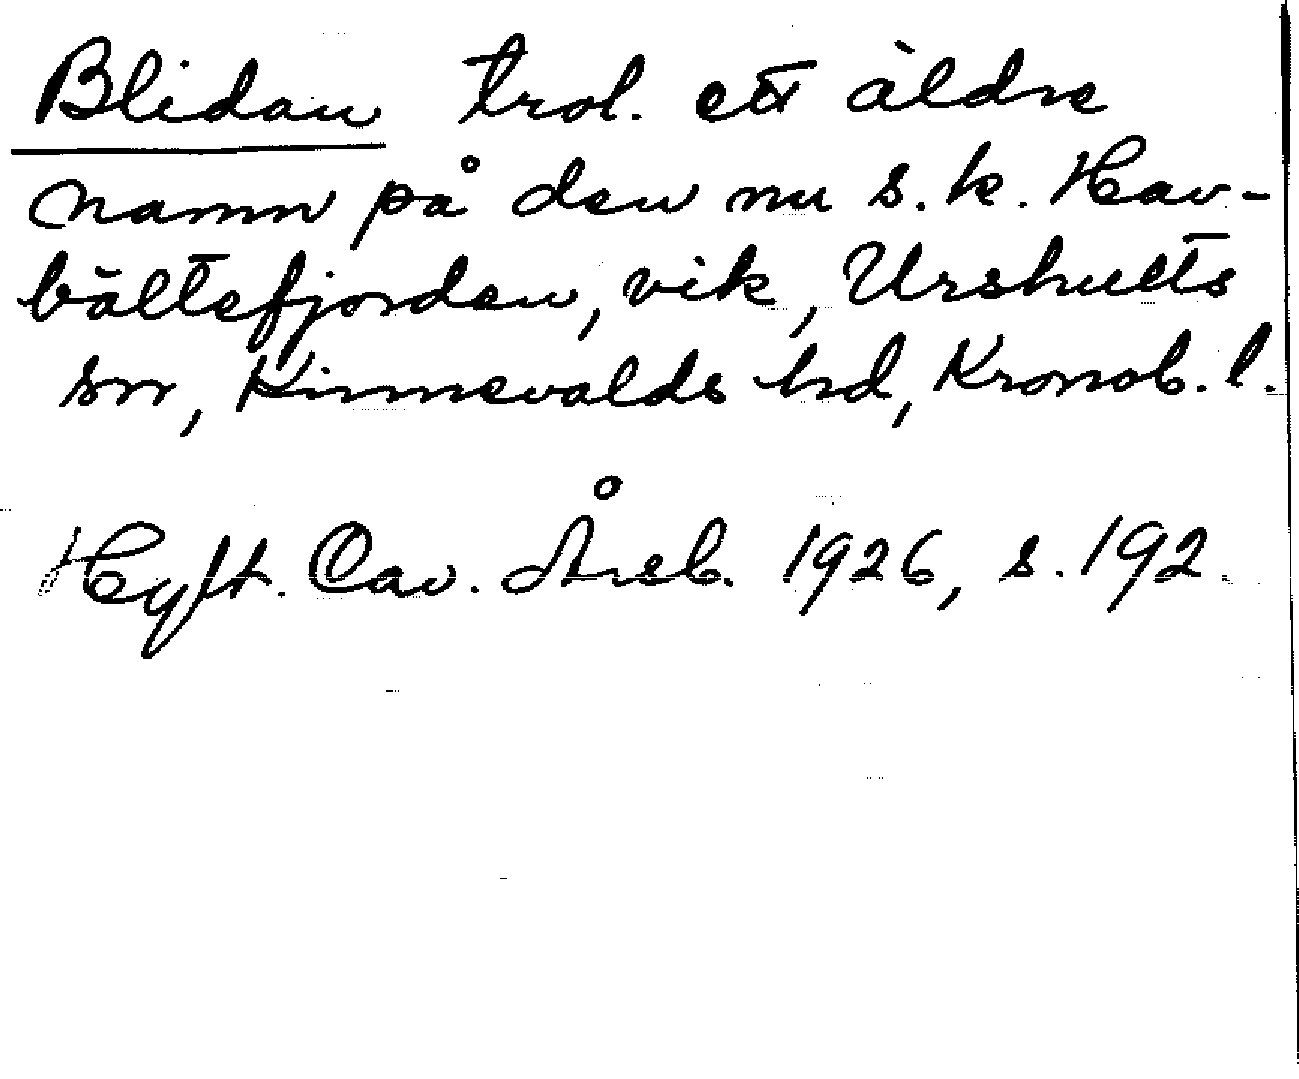 Blidan trol. ett äldre
namn på den nu s.k. Hav-
bältefjorden, vik, Urshults
sn, Kinnevalds hd, Kronob. l.
Hylt. Cav. Årsb. 1926, s. 192.